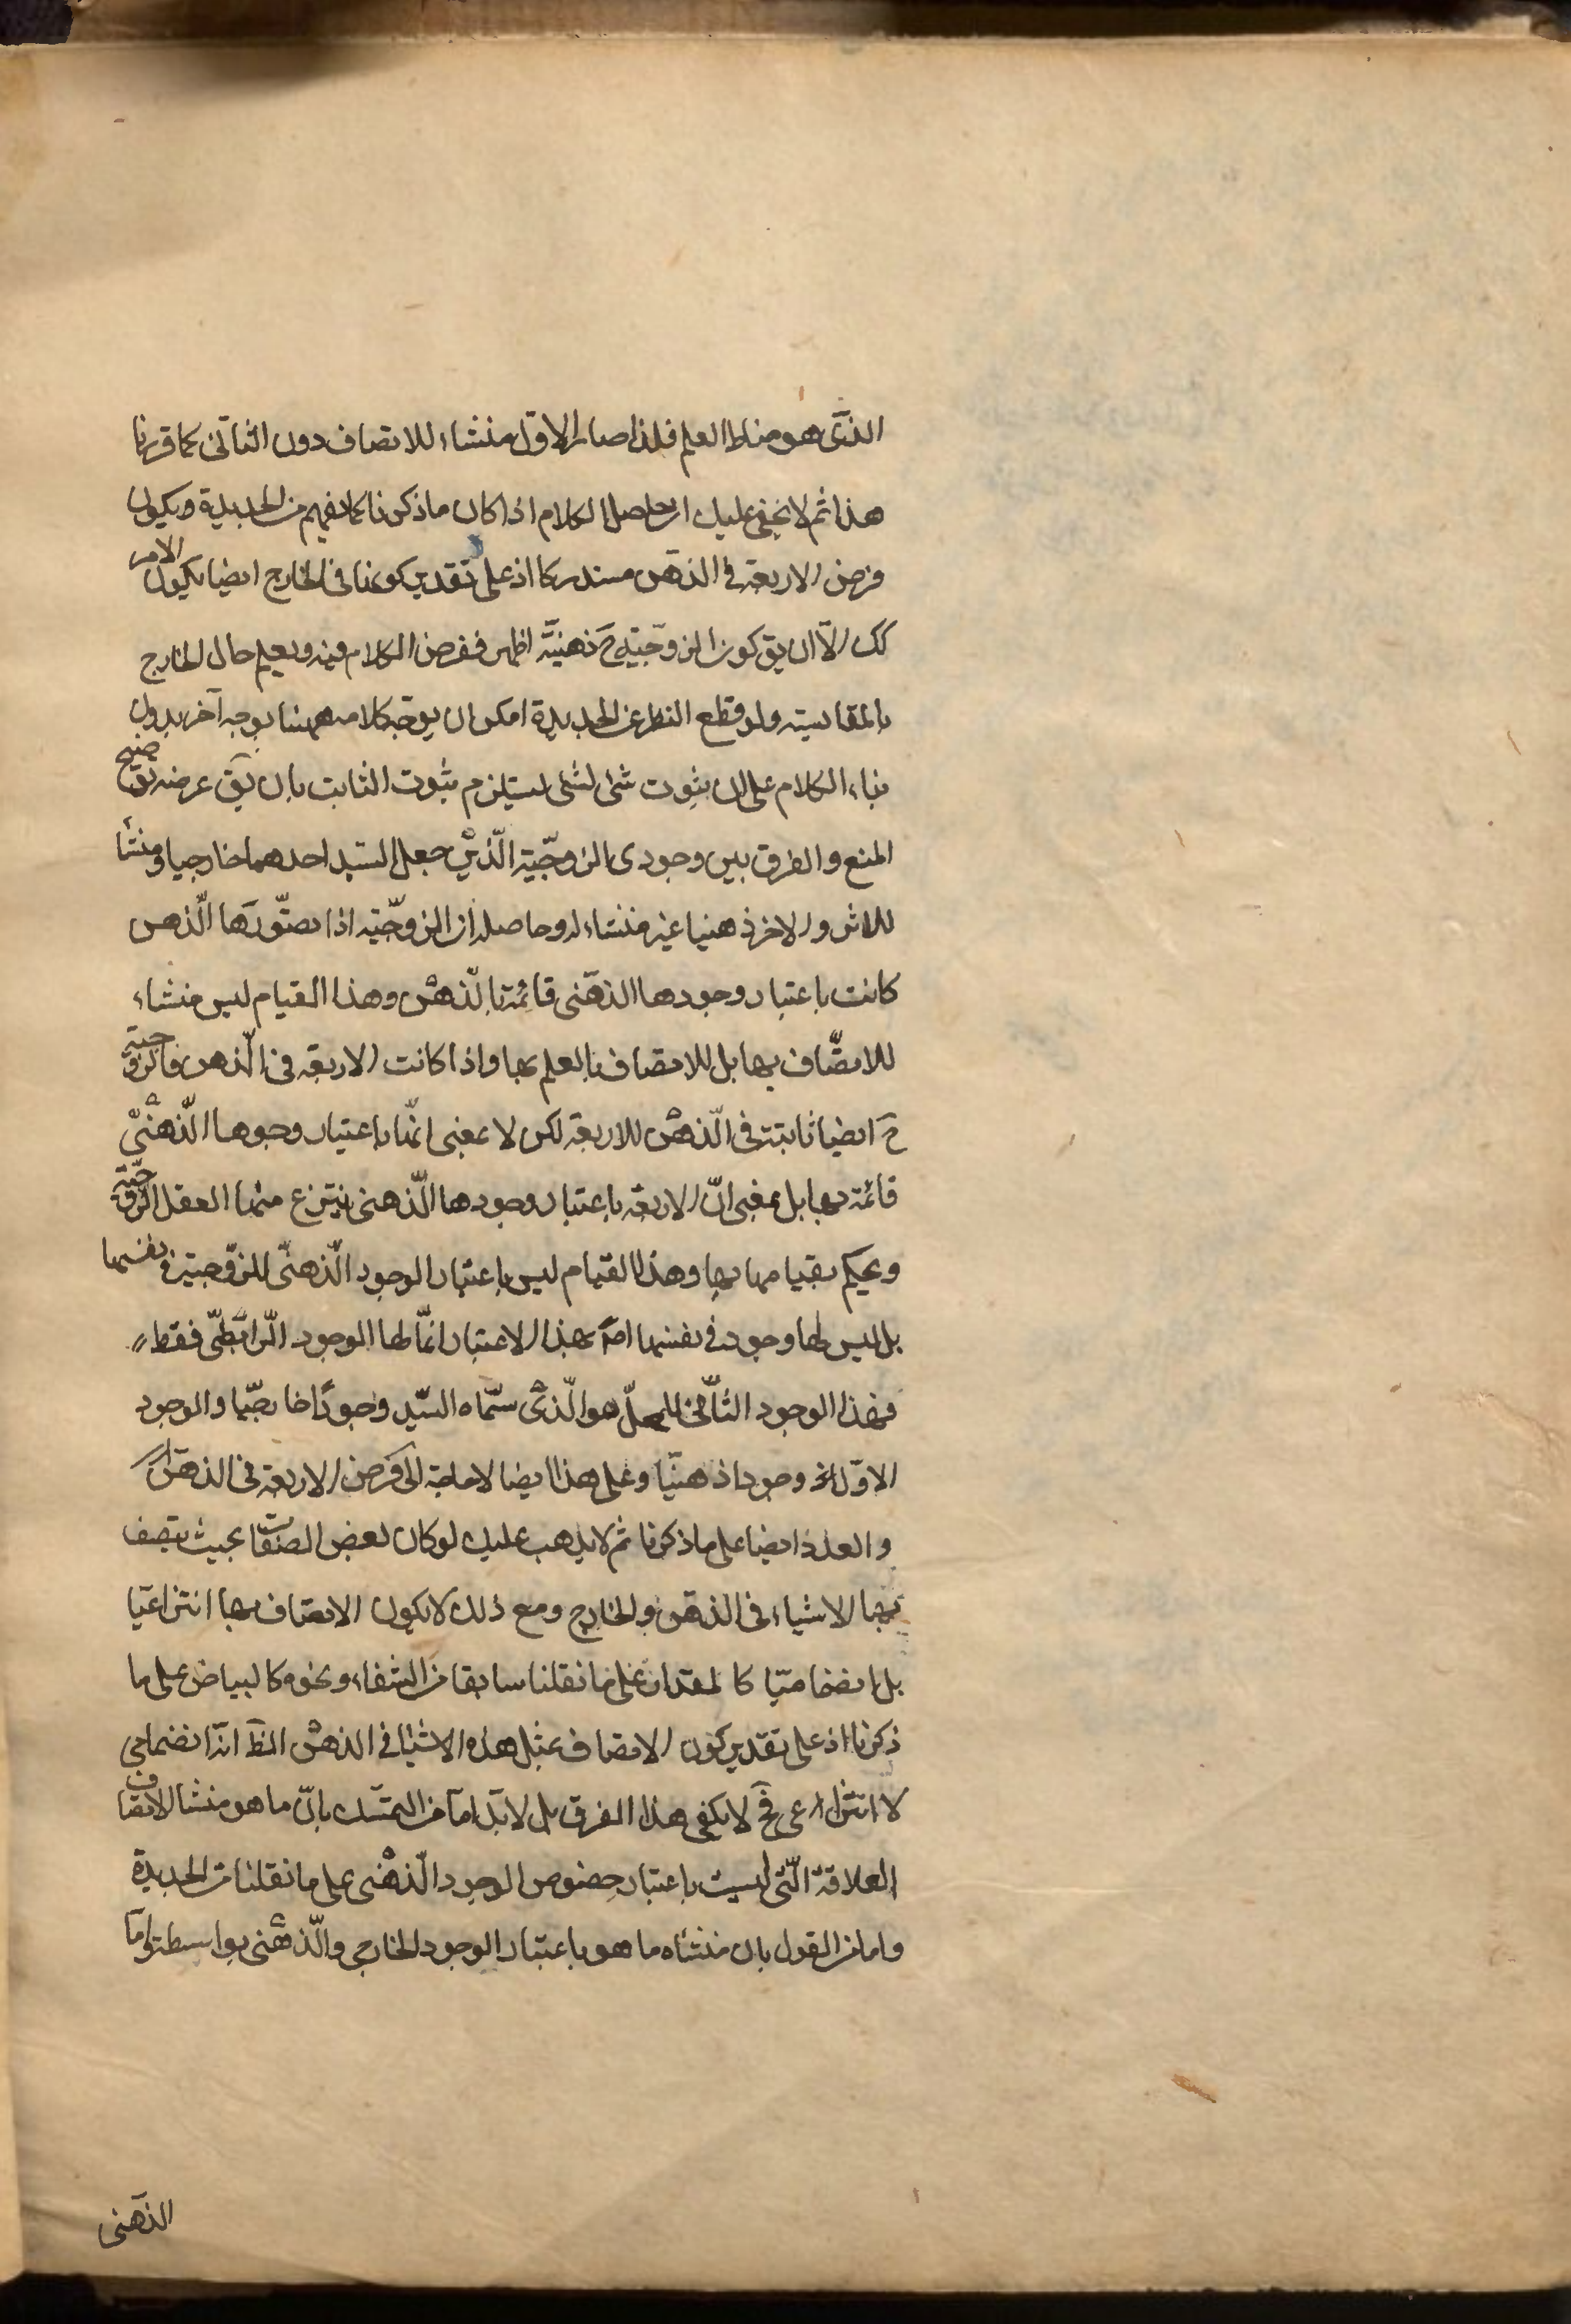 الذى هو مناط العلم فلذا صار الاول منشاء للاتصاف دون الثانى كما قررنا
هذا ثم لا يخفى عليك ان حاصل الكلام اذا كان ما ذكرنا كما يفهم من الجديدة ويكون
فرض الاربعة فى الذهن مستدركا اذ على تقدير كونها فى الخارج ايضا يكون الامر
كك الا ان يق كون الزوجية ح ذهنية اظهر ففرض الكلام فيه ويعلم حال الخارج
بالمقايسة ولو قطع النظر عن الجديدة امكن ان يوجه كلامه ههنا بوجه آخر بدون
بناء الكلام على ان ثبوت شئ لشئ يستلزم ثبوت الثابت بان يق غرضه توضيح
المنع والفرق بين وجودى الزوجية الذين جعل السيد احدهما خارجيا ومنشأ
للاثر والاخر ذهنيا غير منشاء له وحاصله ان الزوجية اذا تصورها الذهن
كانت باعتبار وجودها الذهنى قائمة بالذهن وهذا القيام ليس منشاء
للاتصاف بها بل للاتصاف بالعلم بها واذا كانت الاربعة فى الذهن فالزوجية
ح ايضا ثابتة فى الذهن للاربعة لكن لا بمعنى انها باعتبار وجوها الذهنى
قائمة بها بل بمعنى ان الاربعة باعتبار وجودها الذهنى ينتزع منها العقل الزوجية
ويحكم بقيامها بها وهذا القيام ليس باعتبار الوجود الذهنى للزوجية فى نفسها
بل ليس لها وجود فى نفسها اصلا بهذا الاعتبار انما لها الوجود الرابطى فقط
فهذا الوجود الثانى للمحل هو الذى سماه السيد وجودا خارجيا والوجود
الاول وجودا ذهنيا وعلى هذا ايضا لا حاجة الى فرض الاربعة فى الذهن
والعذر ايضا على ما ذكرنا ثم لا يذهب عليك لو كان لبعض الصفات بحيث يتصف
بها الاشياء فى الذهن والخارج ومع ذلك لا يكون الاتصاف بها انتزاعيا
بل انضماميا كالمقدار على ما نقلنا سابقا من الشفاء ونحوه كالبياض على ما
ذكرنا اذ على تقدير كون الاتصاف بمثل هذه الاشيا فى الذهن الظ انه انضمامى
لا انتزاعى فح لا يكفى هذا الفرق بل لا بد اما من التمسك بان ما هو منشا الاتصاف
العلاقة التى ليست باعتبار خصوص الوجود الذهنى على ما نقلنا من الجديدة
واما من القول بان منشاه ما هو باعتبار الوجود الخارجى والذهنى بواسطة واما
الذهنى